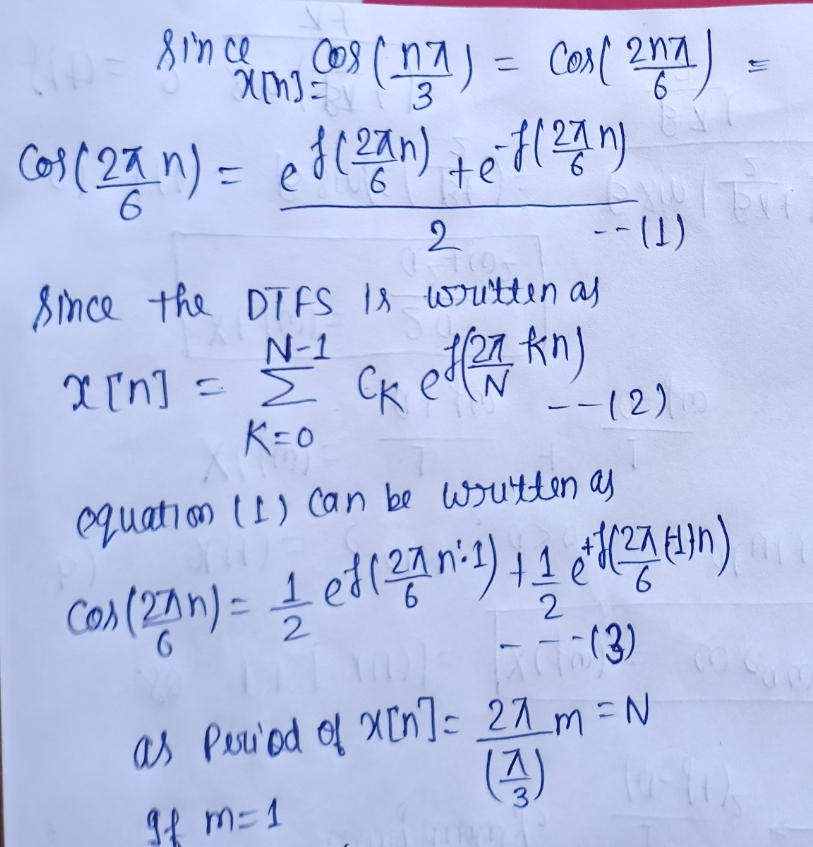 since x[n]= cos(nπ/3) = cos(2nπ/6) =
cos(2π/6 n) = (e^j(2π/6 n) + e^-j(2π/6 n))/2 --(1)
since the DTFS is written as
x[n] = Σ_{K=0}^{N-1} C_K e^j(2π/N kn) ---(2)
equation (1) can be written as
cos(2πn/6) = 1/2 e^j(2π/6 n·1) + 1/2 e^+j(2π/6 (-1)n)
---(3)
as period of x[n] = 2π/(π/3) m = N
If m=1